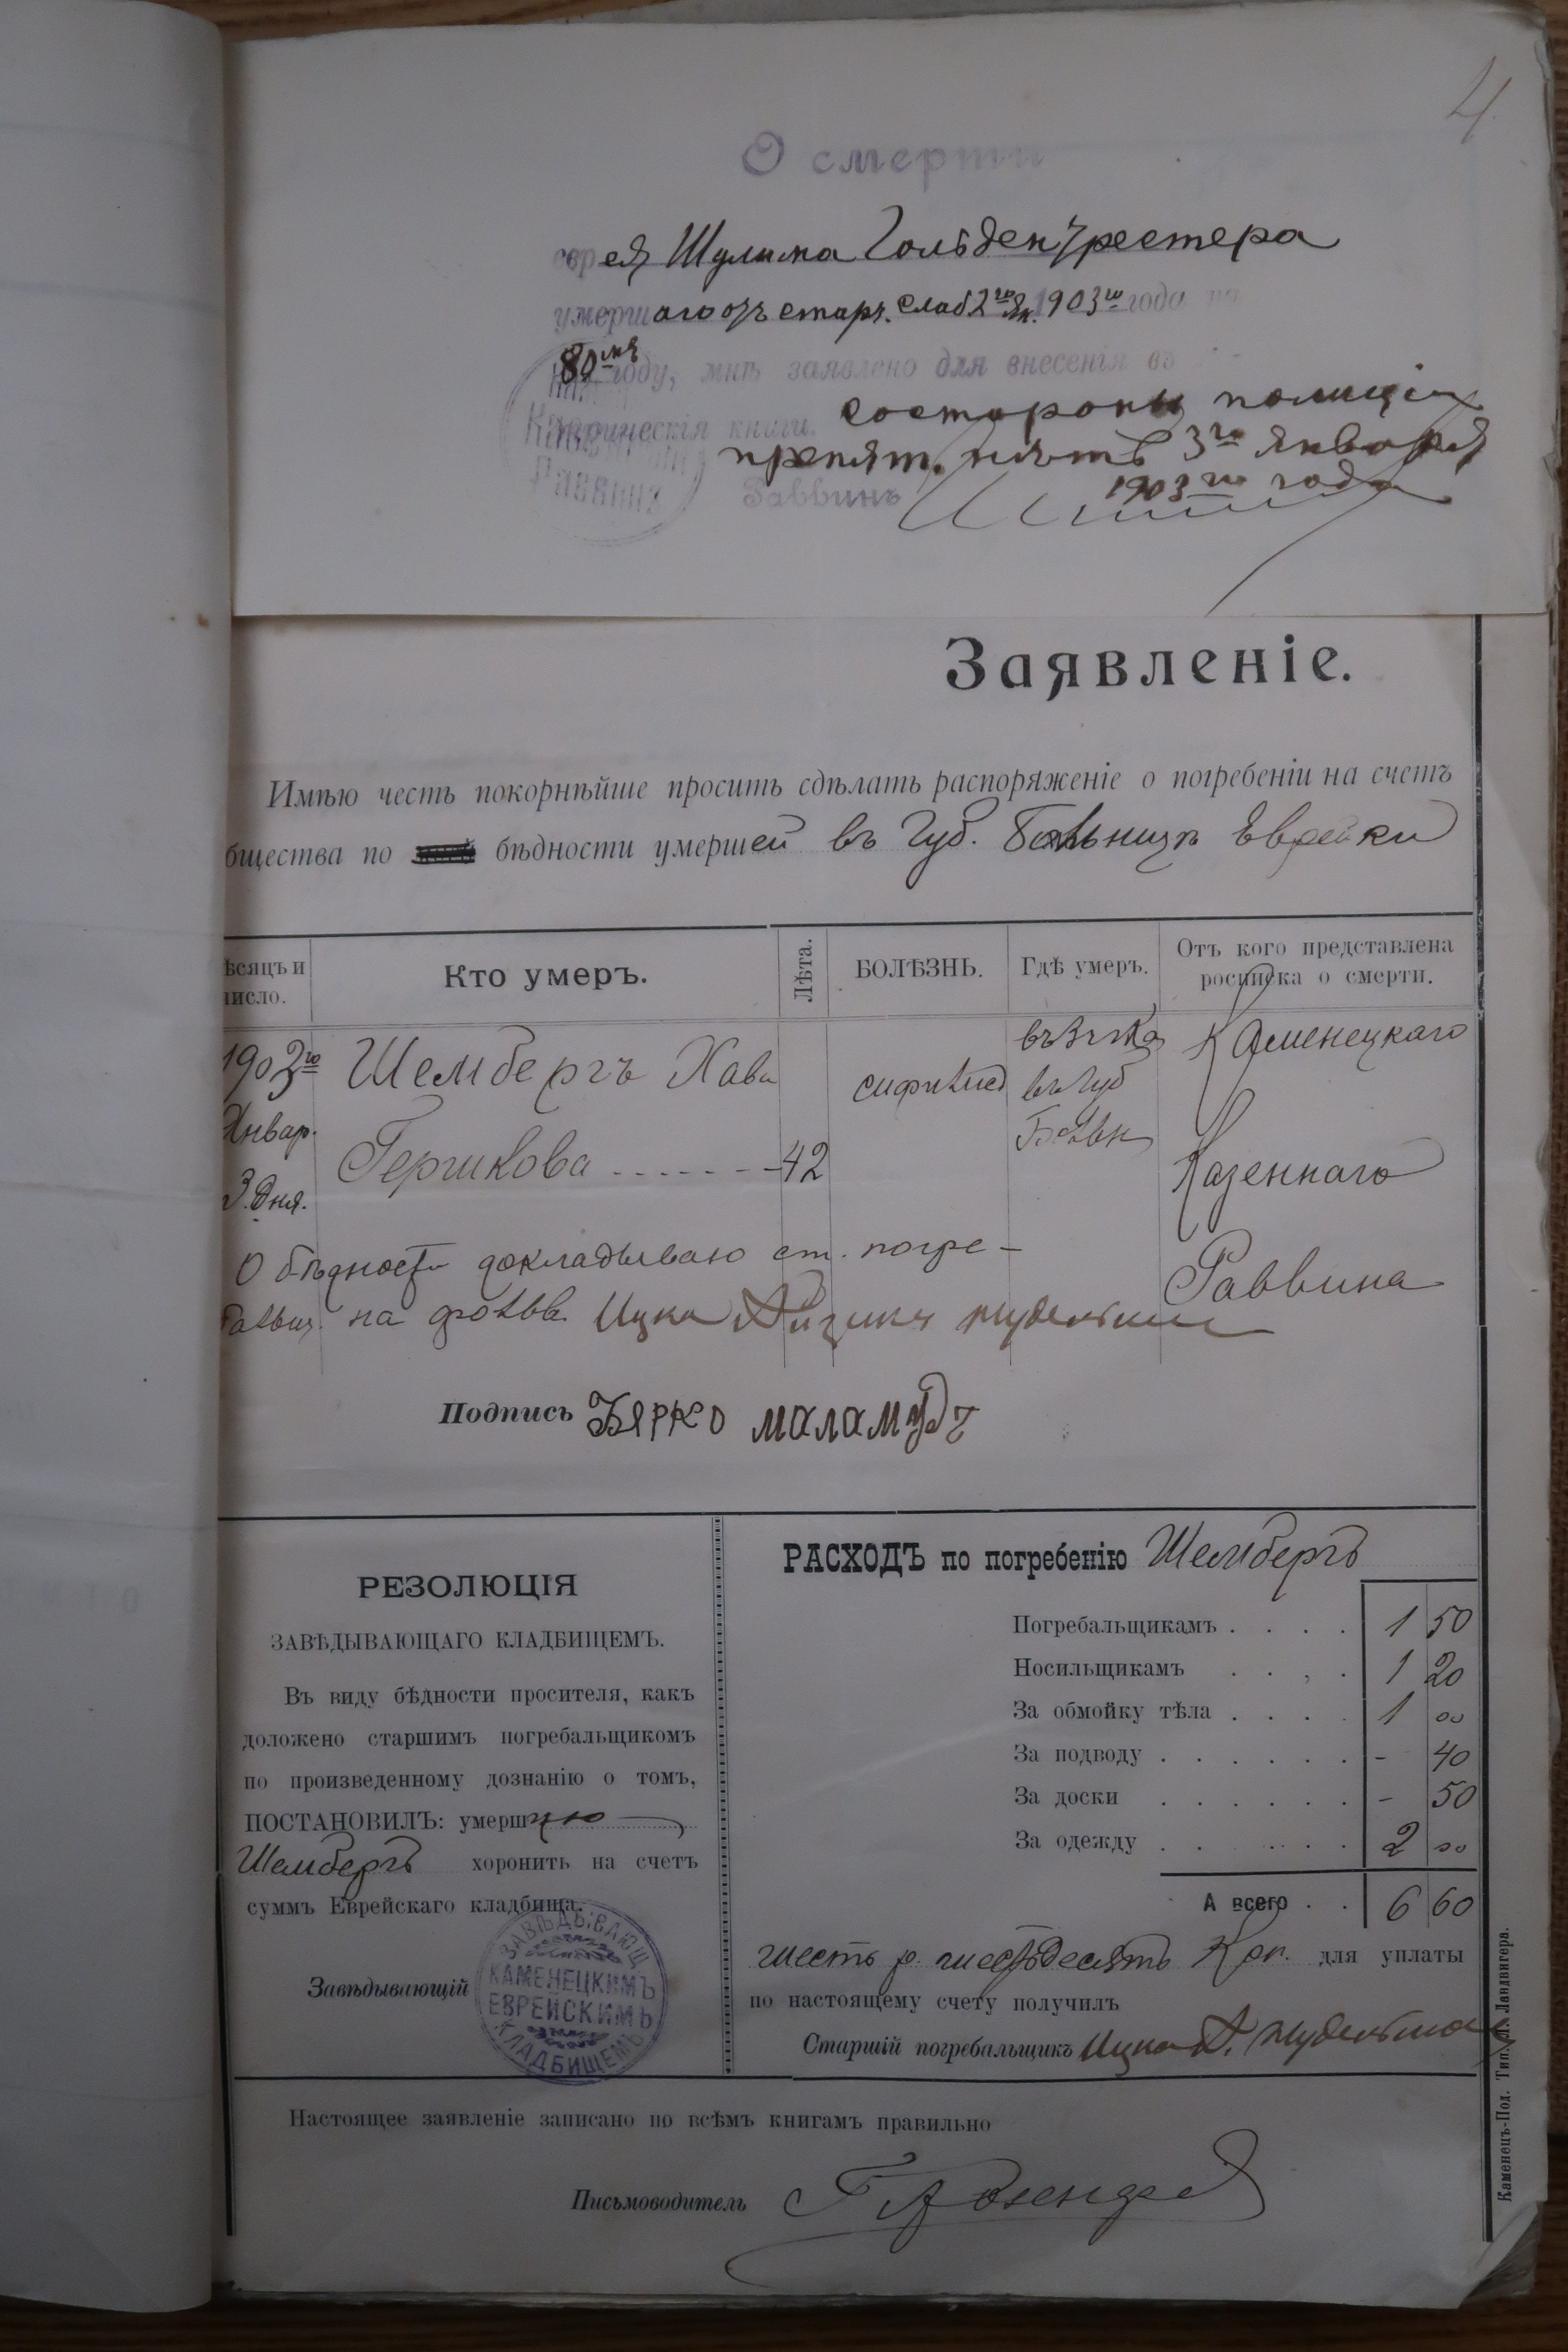 4
О смерти
еврея Шулима Гольденгрестера
умершаго отъ старч. слаб 2го Ян. 1903го года на
80мъ году, мнѣ заявлено для внесенія въ
метрическія книги. со стороны полиціи
препят. нѣтъ 3го января
1903го года
Раввинъ
Раввинъ
Заявленіе.
Имѣю честь покорнѣйше просить сдѣлать распоряженіе о погребеніи на счетъ
бщества по бѣдности умершей въ Губ. Больницѣ Еврейки
ѣсяцъ и число.
Кто умеръ.
Лѣта.
БОЛѢЗНЬ.
Гдѣ умеръ.
Отъ кого представлена росписка о смерти.
1903го Январ. 3 дня.
Шембергъ Хава
Гершкова - - - - - - - 42
сифилис
въ Губ Больн
Каменецкаго
Казеннаго
Раввина
О бѣдности докладываю ст. погре-
бальщ. на фольв. Ицка
Подпись Бярко маламудъ
РЕЗОЛЮЦІЯ
ЗАВѢДЫВАЮЩАГО КЛАДБИЩЕМЪ.
Въ виду бѣдности просителя, какъ
доложено старшимъ погребальщикомъ
по произведенному дознанію о томъ,
ПОСТАНОВИЛЪ: умершую
Шембергъ хоронить на счетъ
суммъ Еврейскаго кладбища.
Завѣдывающій
ЗАВѢДЫВАЮЩ
КАМЕНЕЦКИМЪ
ЕВРЕЙСКИМЪ
КЛАДБИЩЕМЪ
РАСХОДЪ по погребенію Шембергъ
Погребальщикамъ . . . . 1 50
Носильщикамъ . . . . 1 20
За обмойку тѣла . . . . 1 00
За подводу . . . . . . - 40
За доски . . . . . . - 50
За одежду . . . . . 2 00
А всего . . 6 60
шесть р. шестьдесятъ Коп. для уплаты
по настоящему счету получилъ
Старшій погребальщикъ Ицка
Настоящее заявленіе записано по всѣмъ книгамъ правильно
Письмоводитель
Каменецъ-Под. Тип. Л. Ландвигера.